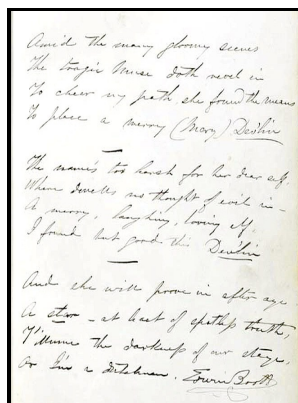 Amid the many gloomy scenes
The tragic Muse doth revel in
To cheer my path she found the means
To place a merry (Mary) Devlin
The name's too harsh for her dear self.
Where dwells no thought of evil in—
A merry, laughing, loving elf,
I found but good this Devlin
And she will prove in after age
A star — at least of spotless truth,
T'illume the darkness of my stage,
Or I'm a Dutchman. Edwin Booth